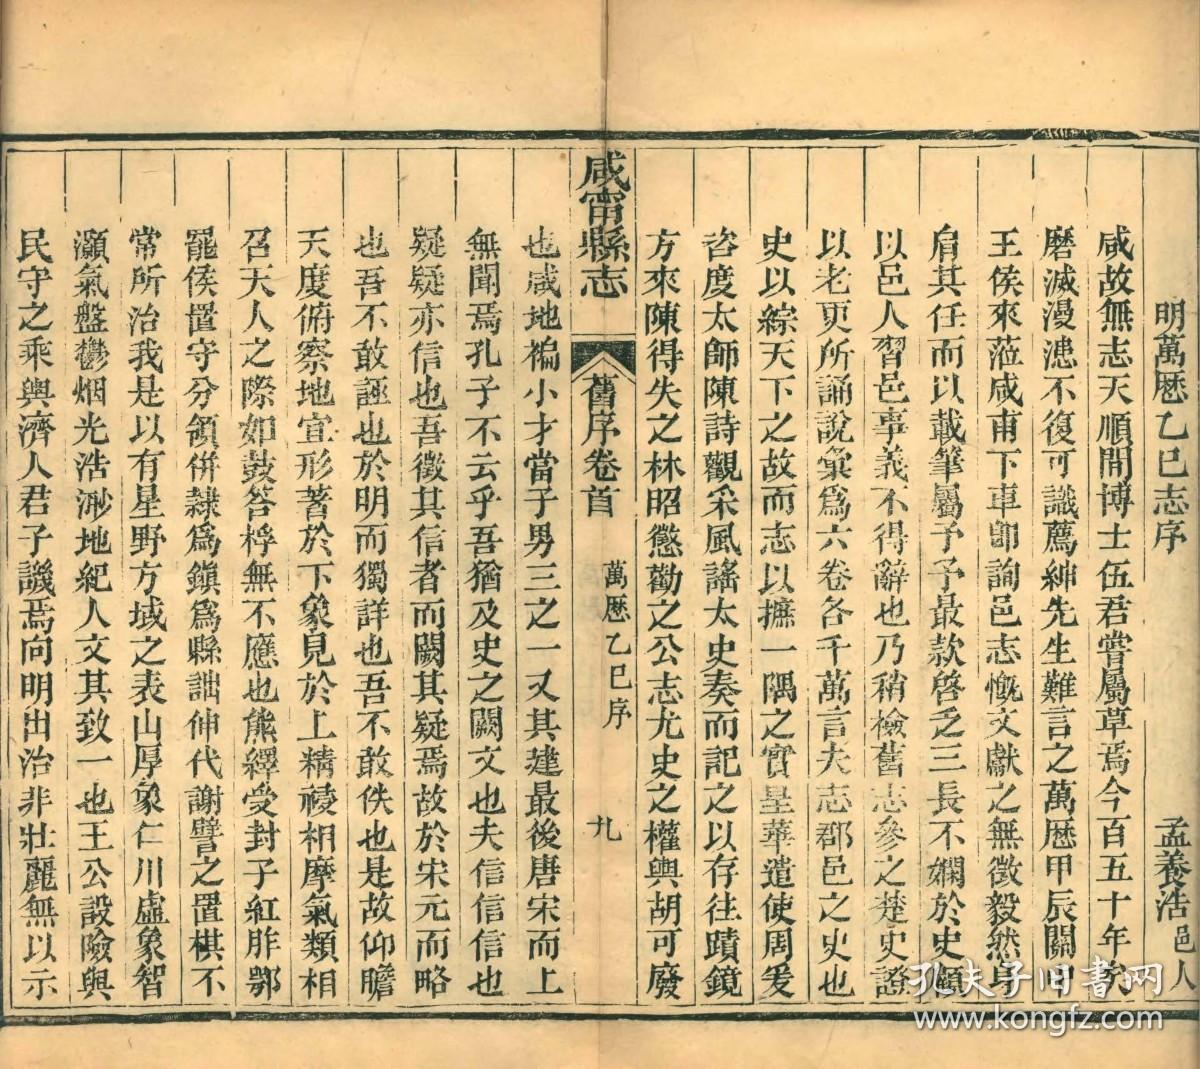 明萬歷乙巳志序 孟養浩邑人
咸故無志天順間博士伍君嘗屬草焉今百五十年矣
磨滅漫漶不復可識薦紳先生難言之萬歷甲辰關中
王侯來蒞咸甫下車卽詢邑志慨文獻之無徵毅然身
肩其任而以載筆屬予予最款啓乏三長不嫻於史顧
以邑人習邑事義不得辭也乃稍檢舊志參之楚史證
以老更所誦說彙爲六卷各千萬言夫志郡邑之史也
史以綜天下之故而志以摭一隅之實星華遣使周爰
咨度太師陳詩觀采風謠太史奏而記之以存往蹟鏡
方來陳得失之林昭懲勸之公志尤史之權輿胡可廢
咸甯縣志 舊序卷首 萬歷乙巳序 九
也咸地褊小才當子男三之一又其建最後唐宋而上
無聞焉孔子不云乎吾猶及史之闕文也夫信信信也
疑疑亦信也吾徵其信者而闕其疑焉故於宋元而略
也吾不敢誣也於明而獨詳也吾不敢佚也是故仰瞻
天度俯察地宜形著於下象見於上精祲相摩氣類相
召天人之際如鼓答桴無不應也熊繹受封子紅胙鄂
罷侯置守分領併隸爲鎭爲縣詘伸代謝譬之置棋不
常所治我是以有星野方域之表山厚象仁川虛象智
灝氣盤鬱烟光浩渺地紀人文其致一也王公設險與
民守之乘輿濟人君子譏焉向明出治非壯麗無以示
孔夫子旧书网
www.kongfz.com